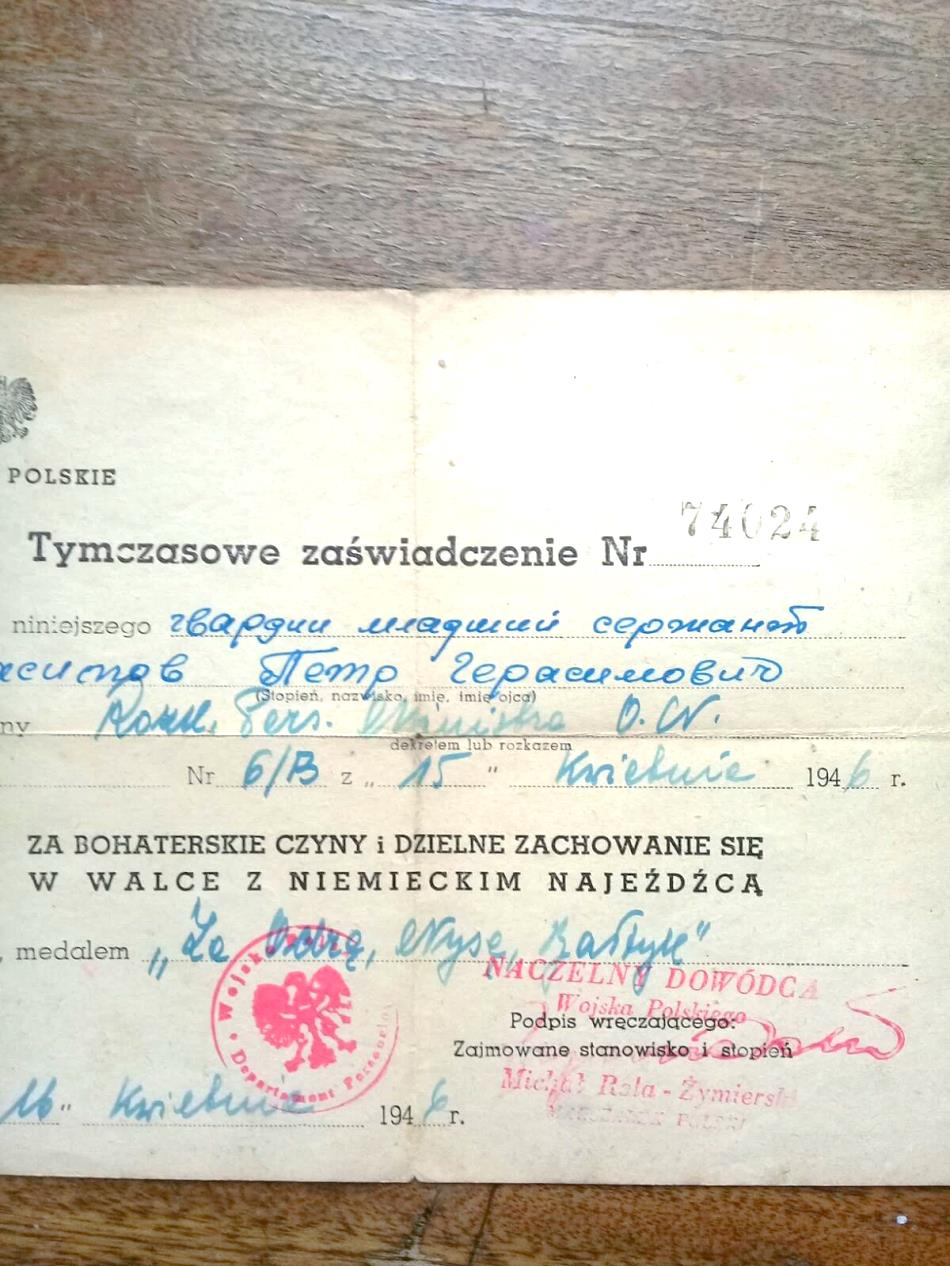 POLSKIE
74024
Tymczasowe zaświadczenie Nr
niniejszego гвардии младший сержант
Петр Герасимович
(Stopień, nazwisko, imię, imię ojca)
ny Rozk. Pers. Ministra O. N.
dekretem lub rozkazem
Nr 6/B z „ 15 " Kwietnia 1946 r.
ZA BOHATERSKIE CZYNY i DZIELNE ZACHOWANIE SIĘ
W WALCE Z NIEMIECKIM NAJEŹDŹCĄ
, medalem „Za Odrę, Nysę, Bałtyk"
Wojsko Departament Personalny
NACZELNY DOWÓDCA
Wojska Polskiego
Podpis wręczającego:
Zajmowane stanowisko i stopień
Michał Rola-Żymierski
MARSZAŁEK POLSKI
16 " Kwietnia 1946 r.